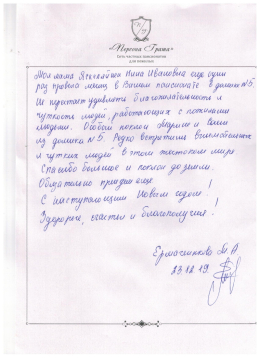 «Портон Грата»
Сеть частных пансионатов
для пожилых
Моя мама Нина Ивановна еще один
раз провела месяц в Вашем пансионате в домике №5.
Не перестает удивлять благожелательность и
чуткость людей, работающих с пожилыми
людьми. Особый поклон Марине и
из домика №5. Редко встретишь внимательных
и чутких людей в этом жестоком мире
Спасибо большое и поклон до земли.
Обязательно приедем еще!
С наступающим Новым годом!
Здоровья, счастья и благополучия!
М А
23.12.19